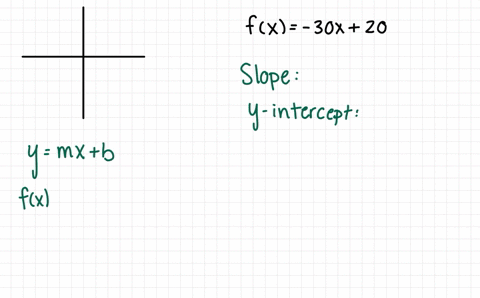 f(x) = -30x + 20
Slope:
y-intercept:
y = mx + b
f(x)